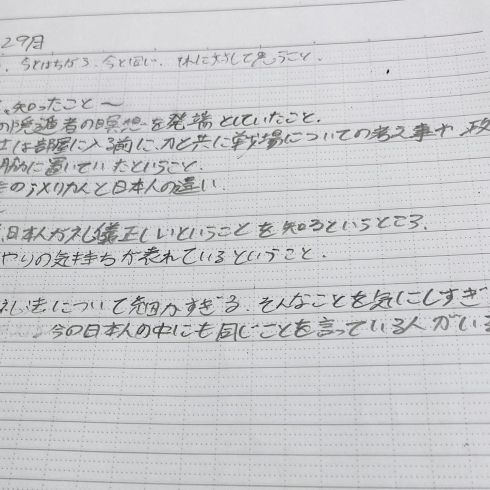 29日
今とはちがう、今と同い、それに対して思うこと。
知ったこと〜
の隠遁者の瞑想を発端としていたこと。
は部屋に入る前に、刀と共に戦場についての考え事や、政
に置いていたということ。
のアメリカ人と日本人の違い
日本人が礼儀正しいということを知るというところ。
やりの気持ちが表れているということ。
礼法について細かすぎる。そんなことを気にしすぎ
今の日本人の中にも同じことを言っている人がいる